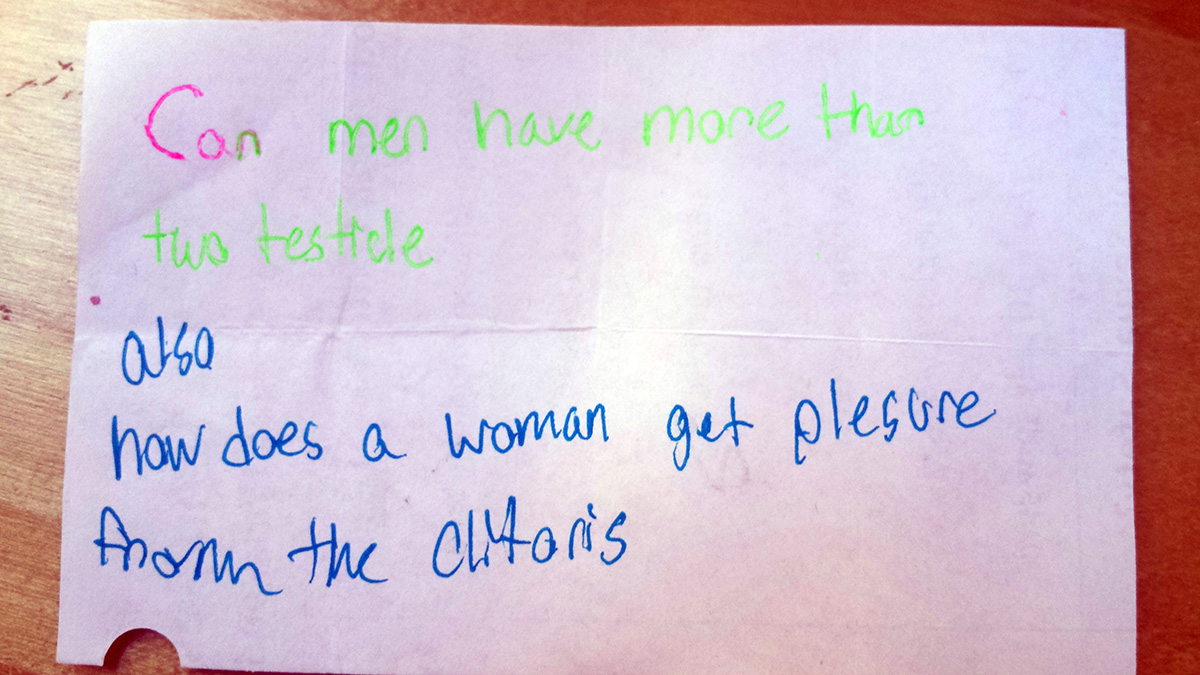 Can men have more than
two testicle
also
how does a woman get plesure
from the clitoris